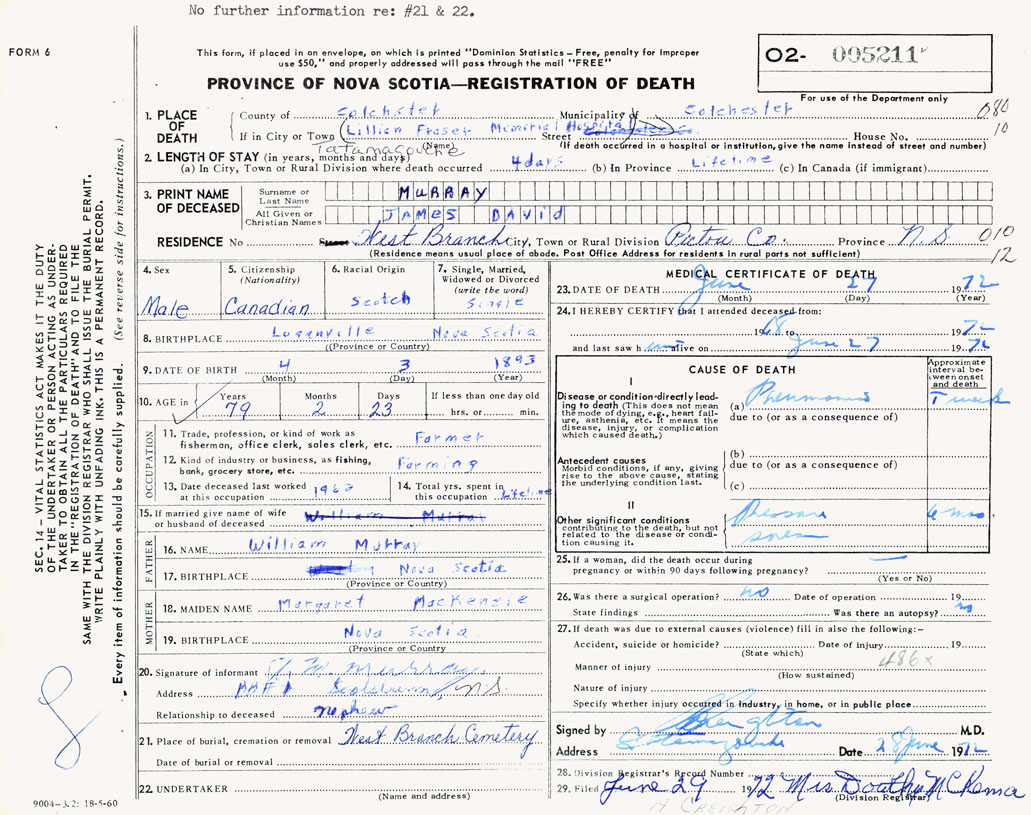 No further information re: #21 & 22.
FORM 6
This form, if placed in an envelope, on which is printed "Dominion Statistics – Free, penalty for improper
use $50," and properly addressed will pass through the mail "FREE"
PROVINCE OF NOVA SCOTIA—REGISTRATION OF DEATH
02- 005211
For use of the Department only
080
10
1. PLACE OF DEATH
County of Colchster Municipality of Colchester
If in City or Town (Lillian Fraser Memorial Hospital) Street House No.
Tatamagouche (Name) (If death occurred in a hospital or institution, give the name instead of street and number)
2. LENGTH OF STAY (in years, months and days)
(a) In City, Town or Rural Division where death occurred 4 days (b) In Province Lifetime (c) In Canada (if immigrant)
3. PRINT NAME OF DECEASED
Surname or Last Name MURRAY
All Given or Christian Names JAMES DAVID
RESIDENCE No West Branch City, Town or Rural Division Pictou Co. Province N.S. 010
(Residence means usual place of abode. Post Office Address for residents in rural parts not sufficient) 12
4. Sex Male
5. Citizenship (Nationality) Canadian
6. Racial Origin Scotch
7. Single, Married, Widowed or Divorced (write the word) Single
8. BIRTHPLACE Loganville Nova Scotia
(Province or Country)
9. DATE OF BIRTH 4 3 1893
(Month) (Day) (Year)
10. AGE in Years 79 Months 2 Days 23 If less than one day old hrs. or min.
OCCUPATION
11. Trade, profession, or kind of work as fisherman, office clerk, sales clerk, etc. Farmer
12. Kind of industry or business, as fishing, bank, grocery store, etc. Farming
13. Date deceased last worked at this occupation 1962
14. Total yrs. spent in this occupation Lifetime
15. If married give name of wife or husband of deceased William Murray
FATHER
16. NAME William Murray
17. BIRTHPLACE Nova Scotia
(Province or Country)
MOTHER
18. MAIDEN NAME Margaret MacKenzie
19. BIRTHPLACE Nova Scotia
(Province or Country)
20. Signature of informant Murray
Address Scotsburn, N.S.
Relationship to deceased nephew
21. Place of burial, cremation or removal West Branch Cemetery
Date of burial or removal
22. UNDERTAKER
(Name and address)
MEDICAL CERTIFICATE OF DEATH
23. DATE OF DEATH June 27 1972
(Month) (Day) (Year)
24. I HEREBY CERTIFY that I attended deceased from:
1968 to 1972
and last saw him alive on June 27 1972
CAUSE OF DEATH
Approximate interval between onset and death
I
Disease or condition directly leading to death (This does not mean the mode of dying, e.g., heart failure, asthenia, etc. It means the disease, injury, or complication which caused death.)
(a) Pneumonia 1 week
due to (or as a consequence of)
Antecedent causes
Morbid conditions, if any, giving rise to the above cause, stating the underlying condition last.
(b)
due to (or as a consequence of)
(c)
II
Other significant conditions
contributing to the death, but not related to the disease or condition causing it.
pressure 6 mos.
sores
25. If a woman, did the death occur during pregnancy or within 90 days following pregnancy?
(Yes or No)
26. Was there a surgical operation? no Date of operation 19
State findings Was there an autopsy? no
27. If death was due to external causes (violence) fill in also the following:–
Accident, suicide or homicide? Date of injury 19
(State which)
Manner of injury 486x
(How sustained)
Nature of injury
Specify whether injury occurred in industry, in home, or in public place
Signed by Creighton M.D.
Address Tatamagouche Date 28 June 1972
28. Division Registrar's Record Number
29. Filed June 29 1972 Mrs
(Division Registrar)
A. CREIGHTON
SEC. 14 – VITAL STATISTICS ACT MAKES IT THE DUTY
OF THE UNDERTAKER OR PERSON ACTING AS UNDER-
TAKER TO OBTAIN ALL THE PARTICULARS REQUIRED
IN THE "REGISTRATION OF DEATH" AND TO FILE THE
SAME WITH THE DIVISION REGISTRAR WHO SHALL ISSUE THE BURIAL PERMIT.
WRITE PLAINLY WITH UNFADING INK. THIS IS A PERMANENT RECORD.
Every item of information should be carefully supplied. (See reverse side for instructions.)
9004-3.2: 18-5-60